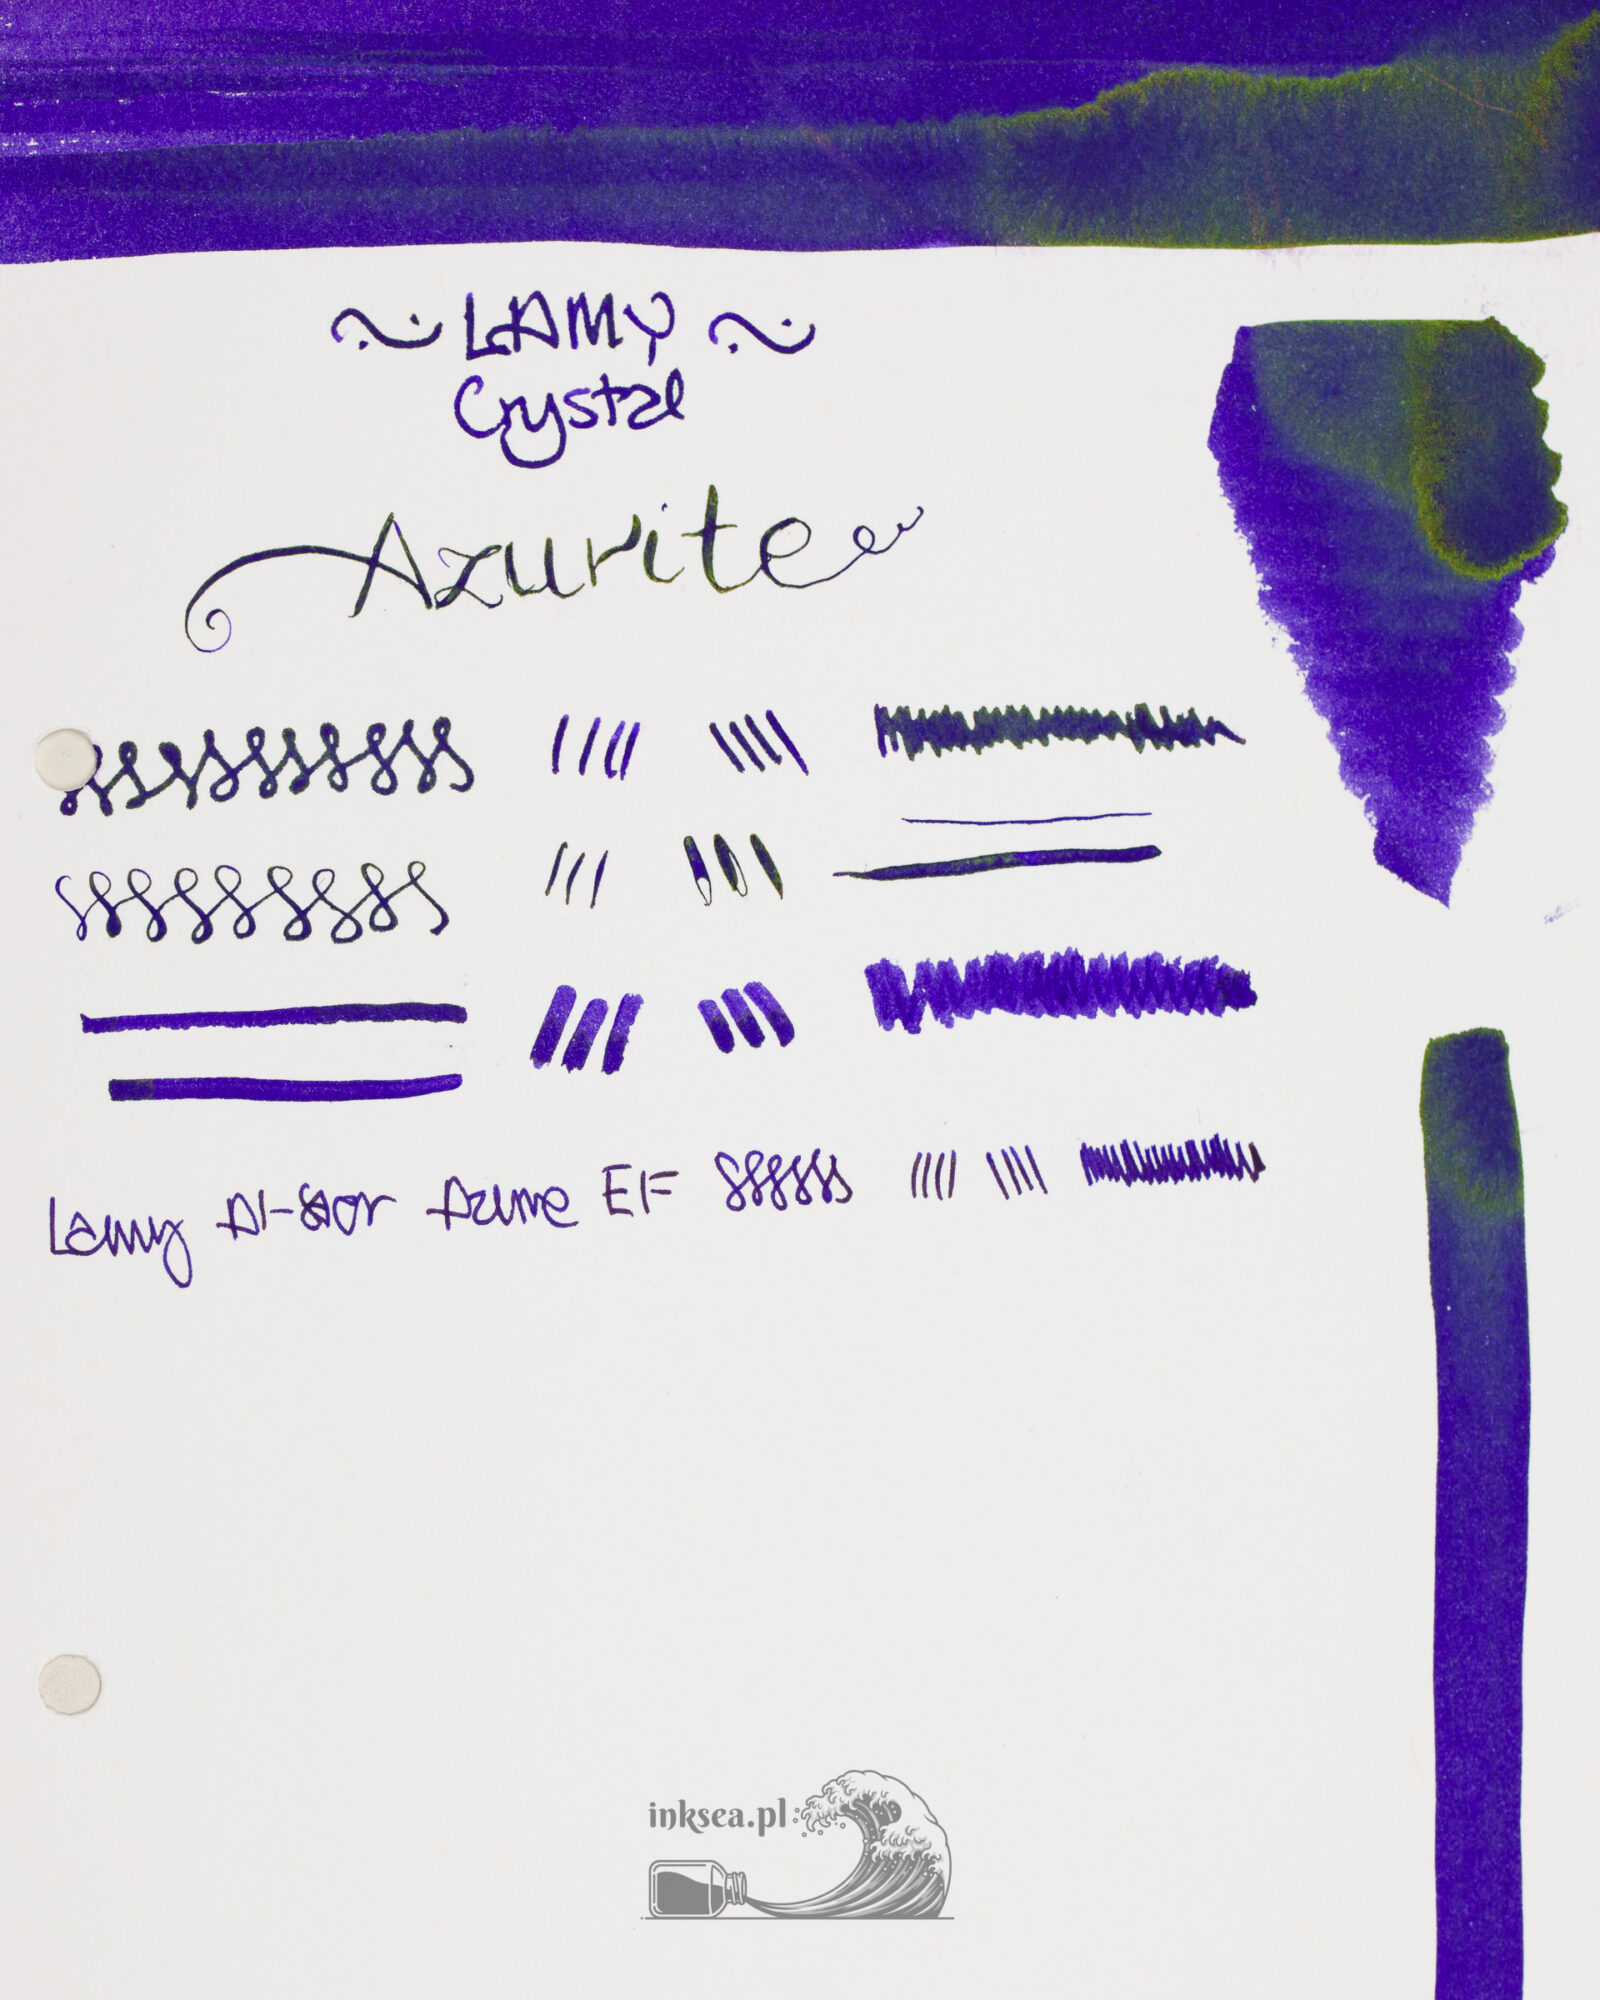 LAMY
Crystal
Azurite
Lamy Al-Star Azure EF
inksea.pl